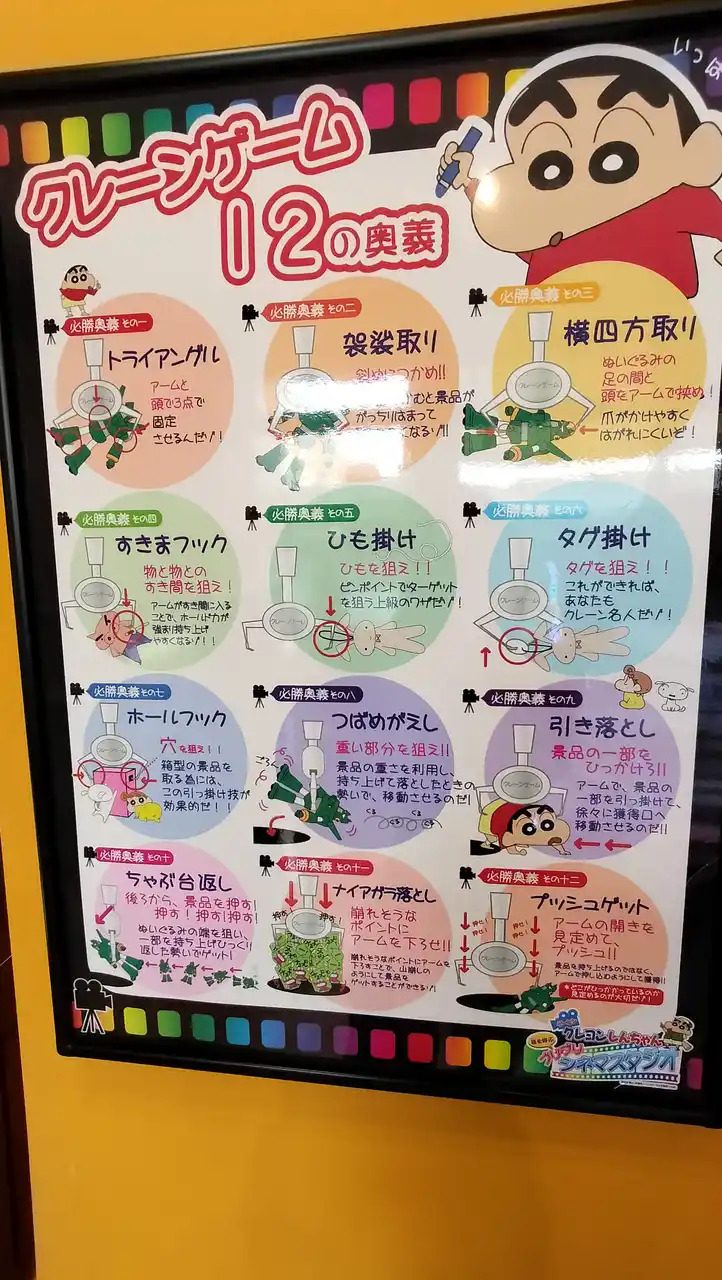 いつ
クレーンゲーム
12の奥義
必勝奥義 その一
トライアングル
アームと
頭で3点で
固定
させるんだゾ!
クレーンゲーム
必勝奥義 その二
袈裟取り
斜めにつかめ!!
むと景品が
がっちりはまって
くなるゾ!!
必勝奥義 その三
横四方取り
ぬいぐるみの
足の間と
頭をアームで挟め!
爪がかけやすく
はがれにくいぞ!
クレーンゲーム
必勝奥義 その四
すきまフック
物と物との
すき間を狙え!
アームがすき間に入る
ことで、ホールド力が
強まり持ち上げ
やすくなるゾ!!
クレーンゲーム
必勝奥義 その五
ひも掛け
ひもを狙え!!
ピンポイントでターゲット
を狙う上級のワザだゾ!
クレーンゲーム
必勝奥義 その六
タグ掛け
タグを狙え!!
これができれば、
あなたも
クレーン名人だゾ!
クレーンゲーム
必勝奥義 その七
ホールフック
穴を狙え!!
箱型の景品を
取る為には、
この引っ掛け技が
効果的だ!!
クレーンゲーム
必勝奥義 その八
つばめがえし
重い部分を狙え!!
景品の重さを利用し、
持ち上げて落としたときの
勢いで、移動させるのだ!
ごろん
必勝奥義 その九
引き落とし
景品の一部を
ひっかけろ!!
アームで、景品の
一部を引っ掛けて、
徐々に獲得口へ
移動させるのだ!!
クレーンゲーム
必勝奥義 その十
ちゃぶ台返し
後ろから、景品を押す!
押す!押す!押す!
ぬいぐるみの端を狙い、
一部を持ち上げひっくり
返した勢いでゲット!
必勝奥義 その十一
ナイアガラ落とし
崩れそうな
ポイントに
アームを下ろせ!!
崩れそうなポイントにアームを
下ろすことで、山崩しの
ようにして景品を
ゲットすることができるゾ!
押す!
押す!
必勝奥義 その十二
プッシュゲット
アームの開きを
見定めて、
プッシュ!!
景品を持ち上げるのではなく、
アームで押し込むようにして獲得!!
*どこがひっかかっているのか
見定めるのが大切だゾ!
クレーンゲーム
クレヨンしんちゃん
シネマスタジオ